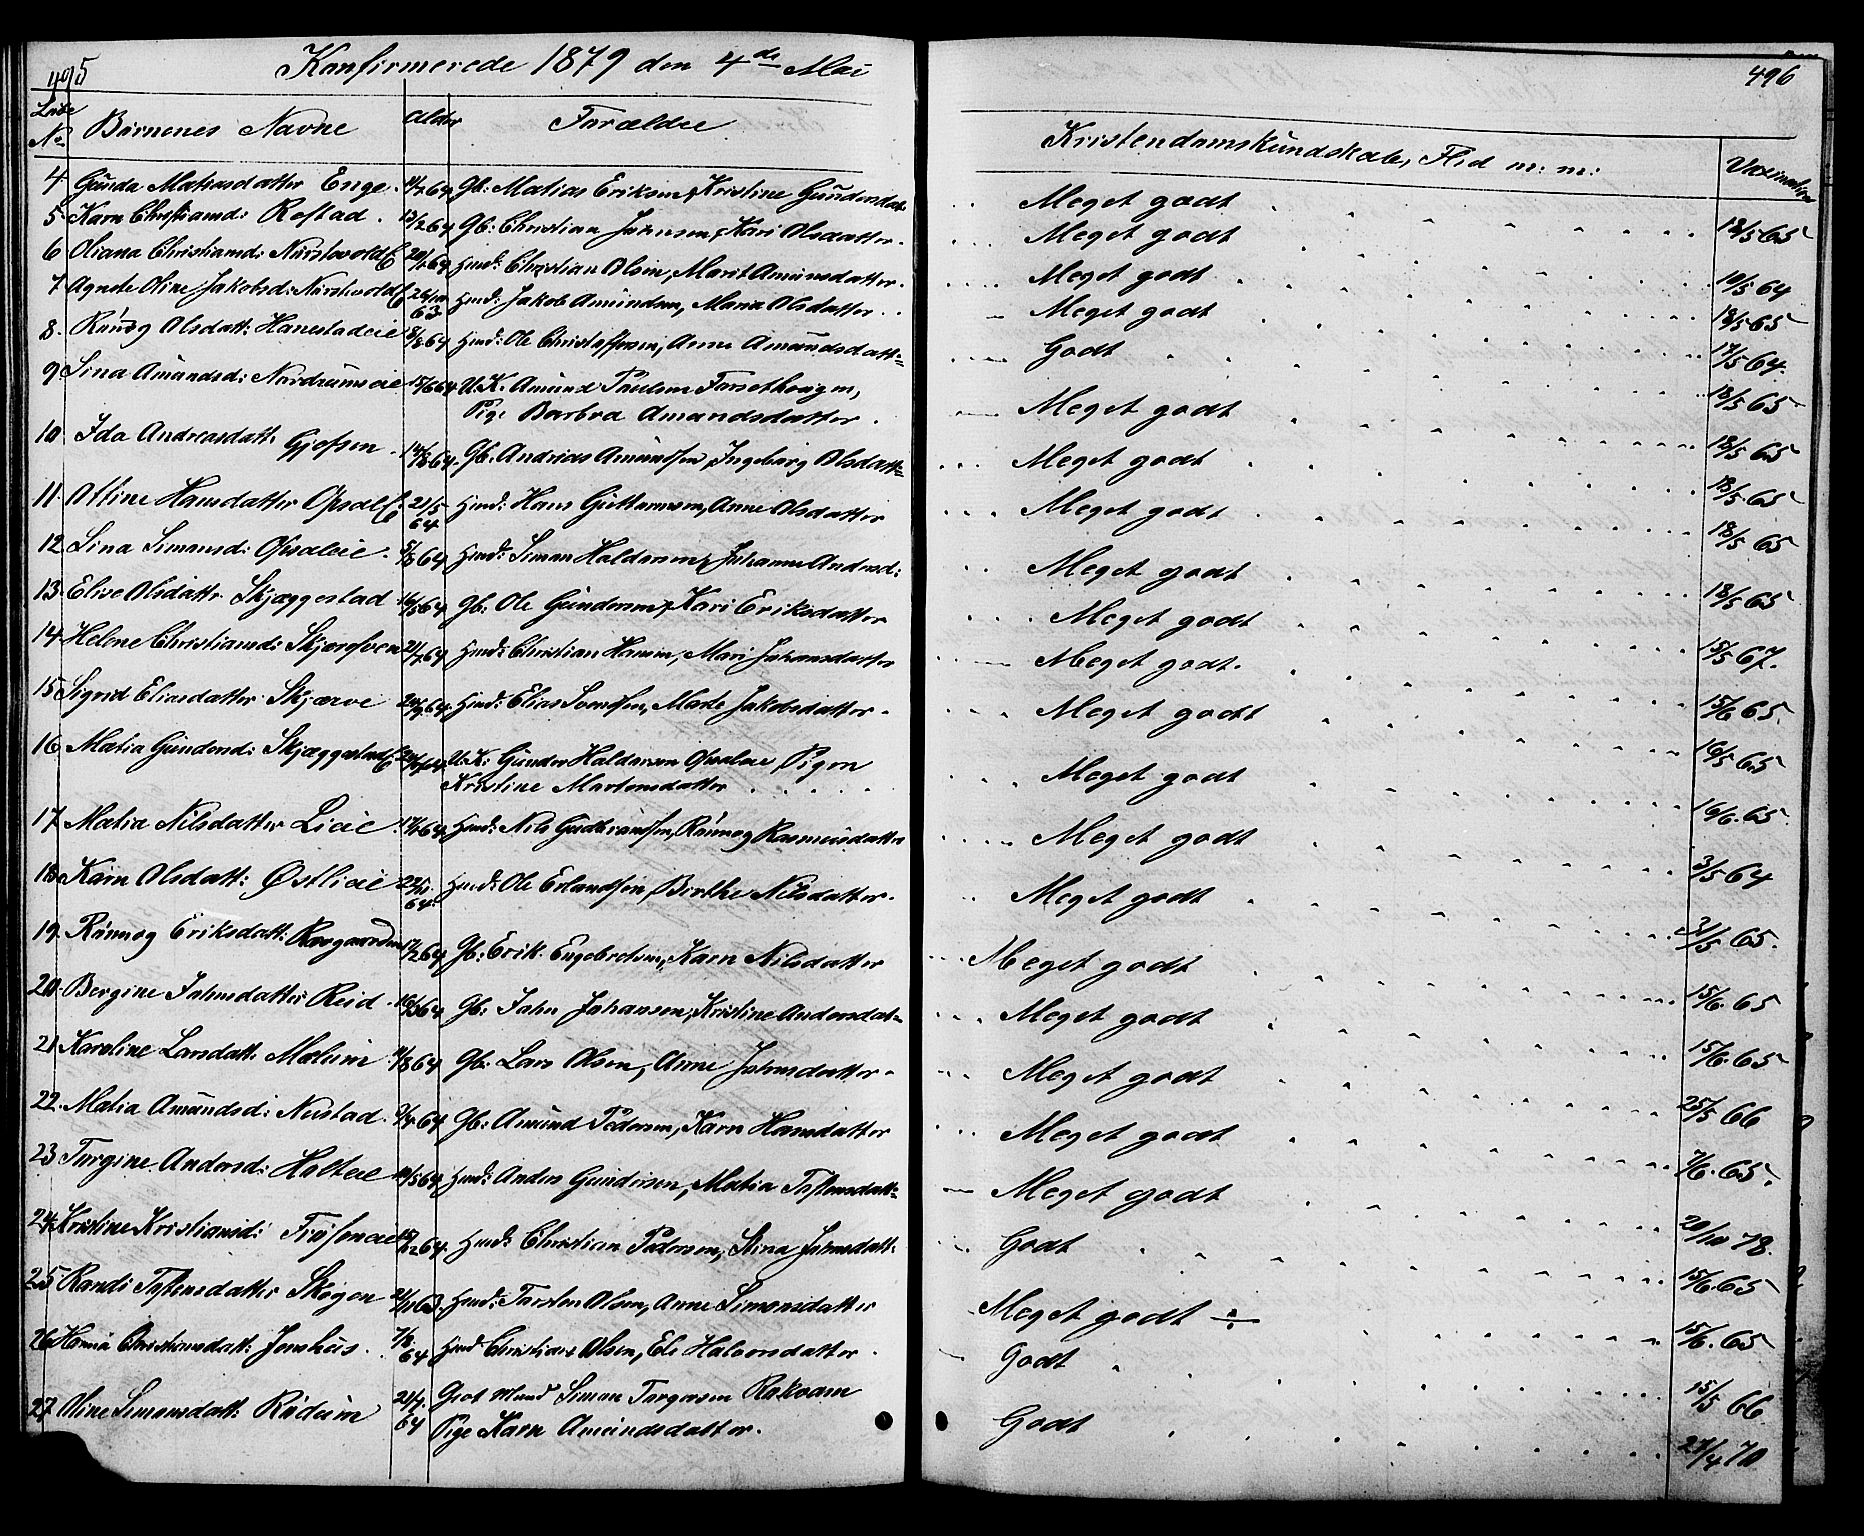 495
Konfirmerede 1879 den 4de Mai
Løbe No Børnenes Navne Alder Forældre
4 Gunda Matiasdatter Enge 64 Gb: Matias Eriksen, Kristine Gundersdat
5 Karn Christiansd: Rostad 13/2 64 Gb: Christian Johnsen, Kari Olsdatter
6 Oliana Christiansd: 64 Husd: Christian Olsen, Marit Amunsdatter
7 Agnete Oline Jakobsd: 26/10 63 Husd: Jakob Amundsen, Maria Olsdatter
8 Rønnog Olsdatt: Hanestadeie 8/8 64 Husd: Ole Christoffersen, Anne Amundsdatt=
9 Lina Amundsd: Nordrumseie 15/6 64 U.K. Amund Paulsen
Pige Barbra Amundsdatter
10 Ida Andreasdatt: Gjefsen 64 Gb. Andrias Amundsen, Ingeborg Olsdatt=
11 Attine Hansdatter 21/5 64 Husd: Hans Guttormsen, Anne Olsdatter
12 Lina Simonsd: Opsaleie 8/8 64 Husd: Simon Haldorsen, Johanne Andersd:
13 Elise Olsdattr Skjæggestad 16/5 64 Gb: Ole Gundersen, Kari Eriksdatter
14 Helene Christiansd: 64 Husd: Christian Hansen, Mari Johansdatter
15 Sigrid Eliasdatter Skjærve 64 Husd: Elias Svendsen, Marte Jakobsdatter
16 Matia Gundersd: 64 U.K: Gunder Haldorsen Opsaleie Pigen
Kristine Martensdatter
17 Matia Nilsdatter Lieie 64 Husd: Nils Gudbrandsen, Rønnog Rasmusdatter
18 Karn Olsdatt: Østlieie 64 Husd: Ole Erlandsen, Birthe Nilsdatter
19 Rønnog Eriksdatt: 17/2 64 Gb: Erik Engebretsen, Karn Nilsdatter
20 Bergine Johnsdatter Reid 64 Gb: John Johansen, Kristine Andersdat=
21 Karoline Larsdatt: Mælum 64 Gb: Lars Olsen, Anne Johnsdatter
22 Matia Amundsd: Neustad 64 Gb: Amund Pedersen, Karn Hansdatter
23 Torgine Andersd: Holteie 64 Husd: Anders Gundersen, Matia Tostensdatt=
24 Kristine Kristiansd: 64 Husd: Christian Pedersen, Stina Johnsdatt:
25 Randi Tostensdatter Skogen 63 Husd: Torsten Olsen, Anne Simonsdatter
26 Christiansdatt: Jonshus 64 Husd Christian Olsen, Eli Halvorsdatter
27 Oline Simonsdatt: 21/7 64 Simon Torgersen Rakvam
Pige Karn Amundsdatter
496
Kristendomskundskab, Flid m: m: Vaxination
Meget godt 18/5 65
Meget godt 10/5 64
Meget godt 18/5 65
Meget godt 17/5 64
Godt 18/5 65
Meget godt 18/5 65
Meget godt 18/5 65
Meget godt 18/5 65
Meget godt 18/5 65
Meget godt 15/5 67
Meget godt 15/6 65
Meget godt 16/5 65
Meget godt 16/6 65
Meget godt 3/5 64
Meget godt 31/5 65
Meget godt 15/6 65
Meget godt 15/6 65
Meget godt 25/5 66
Meget godt 7/6 65
Meget godt 20/10 78
Godt 15/6 65
Meget godt ÷ 15/6 65
Godt 15/5 66
Godt 27/4 70